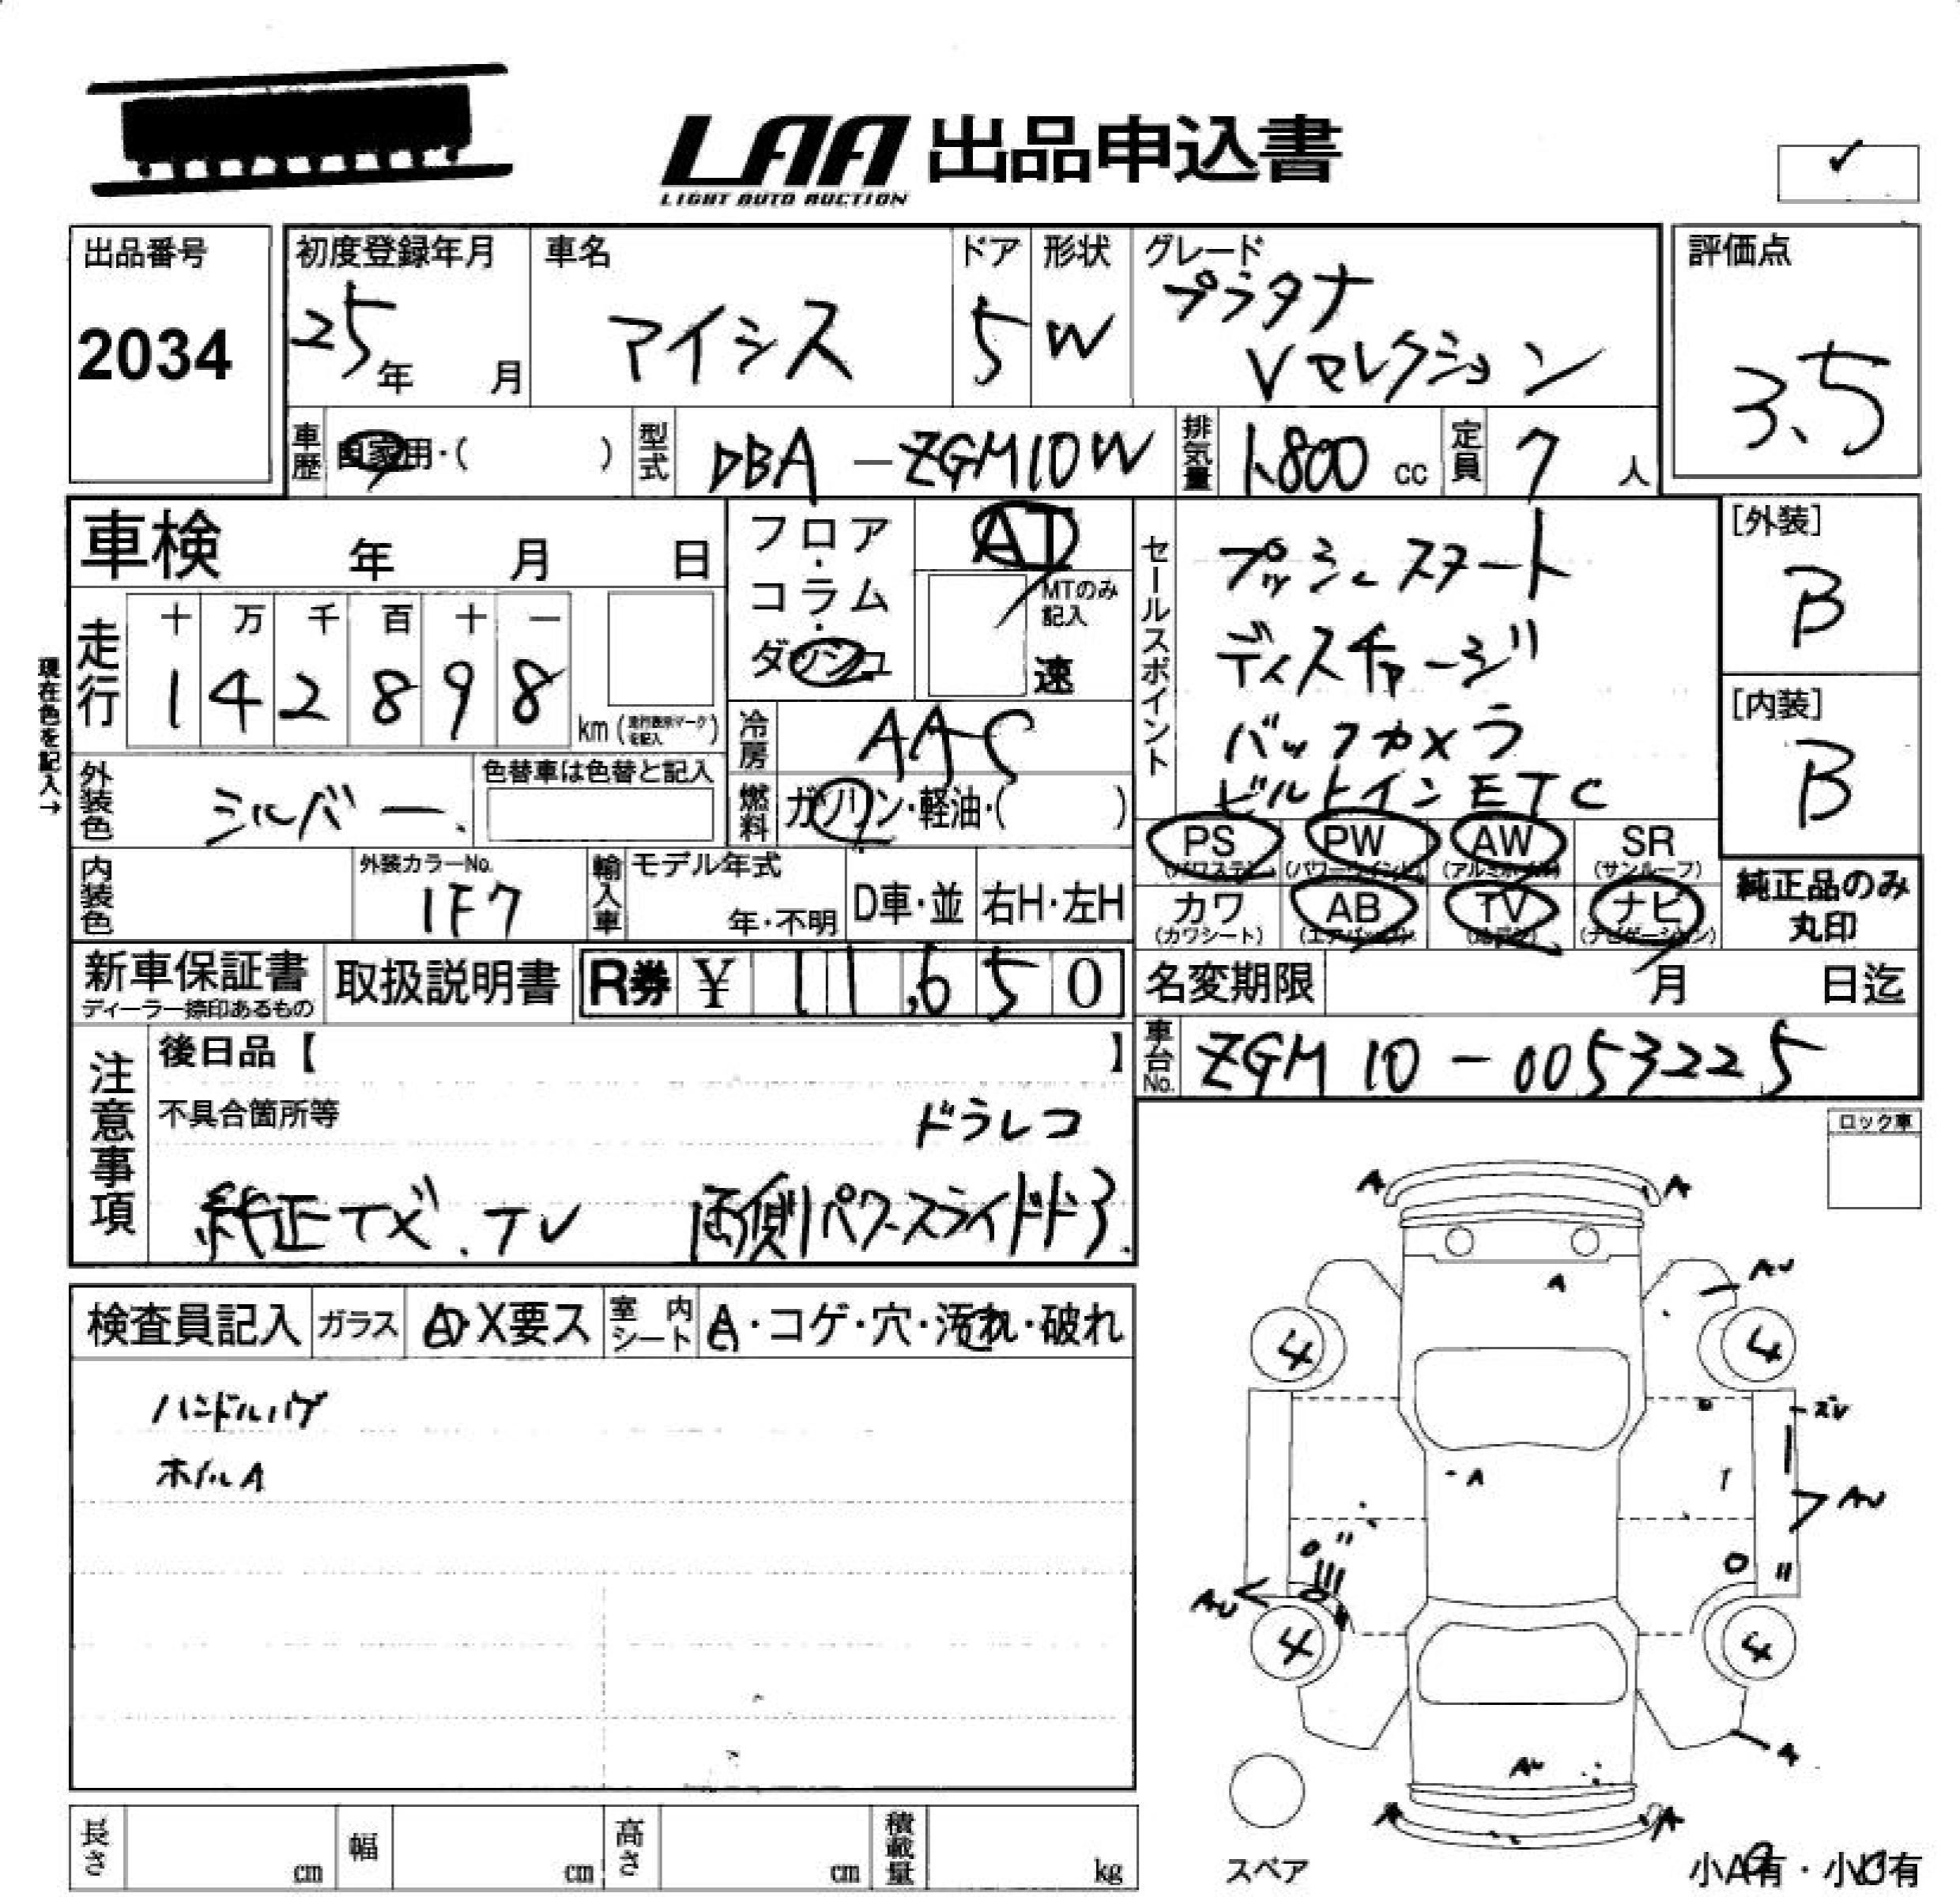 LAA 出品申込書
LIGHT AUTO AUCTION
✓
出品番号
2034
初度登録年月
25年 月
車名
アイシス
ドア
5
形状
W
グレード
プラタナ
Vセレクション
評価点
3.5
車歴
自家用・( )
型式
DBA-ZGM10W
排気量
1.800 cc
定員
7 人
車検 年 月 日
フロア・コラム・ダッシュ
AT
MTのみ記入
速
セールスポイント
プッシュスタート
ディスチャージ
バックカメラ
ビルトインETC
[外装]
B
[内装]
B
現在色を記入→
走行
十 万 千 百 十 一
1 4 2 8 9 8
km (走行表示マークを記入)
冷房
AAC
外装色
シルバー.
色替車は色替と記入
燃料
ガソリン・軽油・( )
PS
(パワステ)
PW
(パワーウインド)
AW
(アルミホイル)
SR
(サンルーフ)
カワ
(カワシート)
AB
(エアバック)
TV
ナビ
(ナビゲーション)
純正品のみ
丸印
内装色
外装カラーNo.
1F7
輸入車
モデル年式
年・不明
D車・並
右H・左H
新車保証書
ディーラー捺印あるもの
取扱説明書
R券 ¥ 11,650
名変期限 月 日迄
車台No.
ZGM10-0053225
注意事項
後日品【 】
不具合箇所等
ドラレコ
純正ナビ.TV 両側パワースライドドア.
ロック車
検査員記入
ガラス
A・X要ス
室内シート
A・コゲ・穴・汚れ・破れ
ハンドルハゲ
ホイルA
A A
A AU
4 4
A AU
AU
4 4
A
AU
A A
スペア
小A有・小U有
長さ cm
幅 cm
高さ cm
積載量 kg